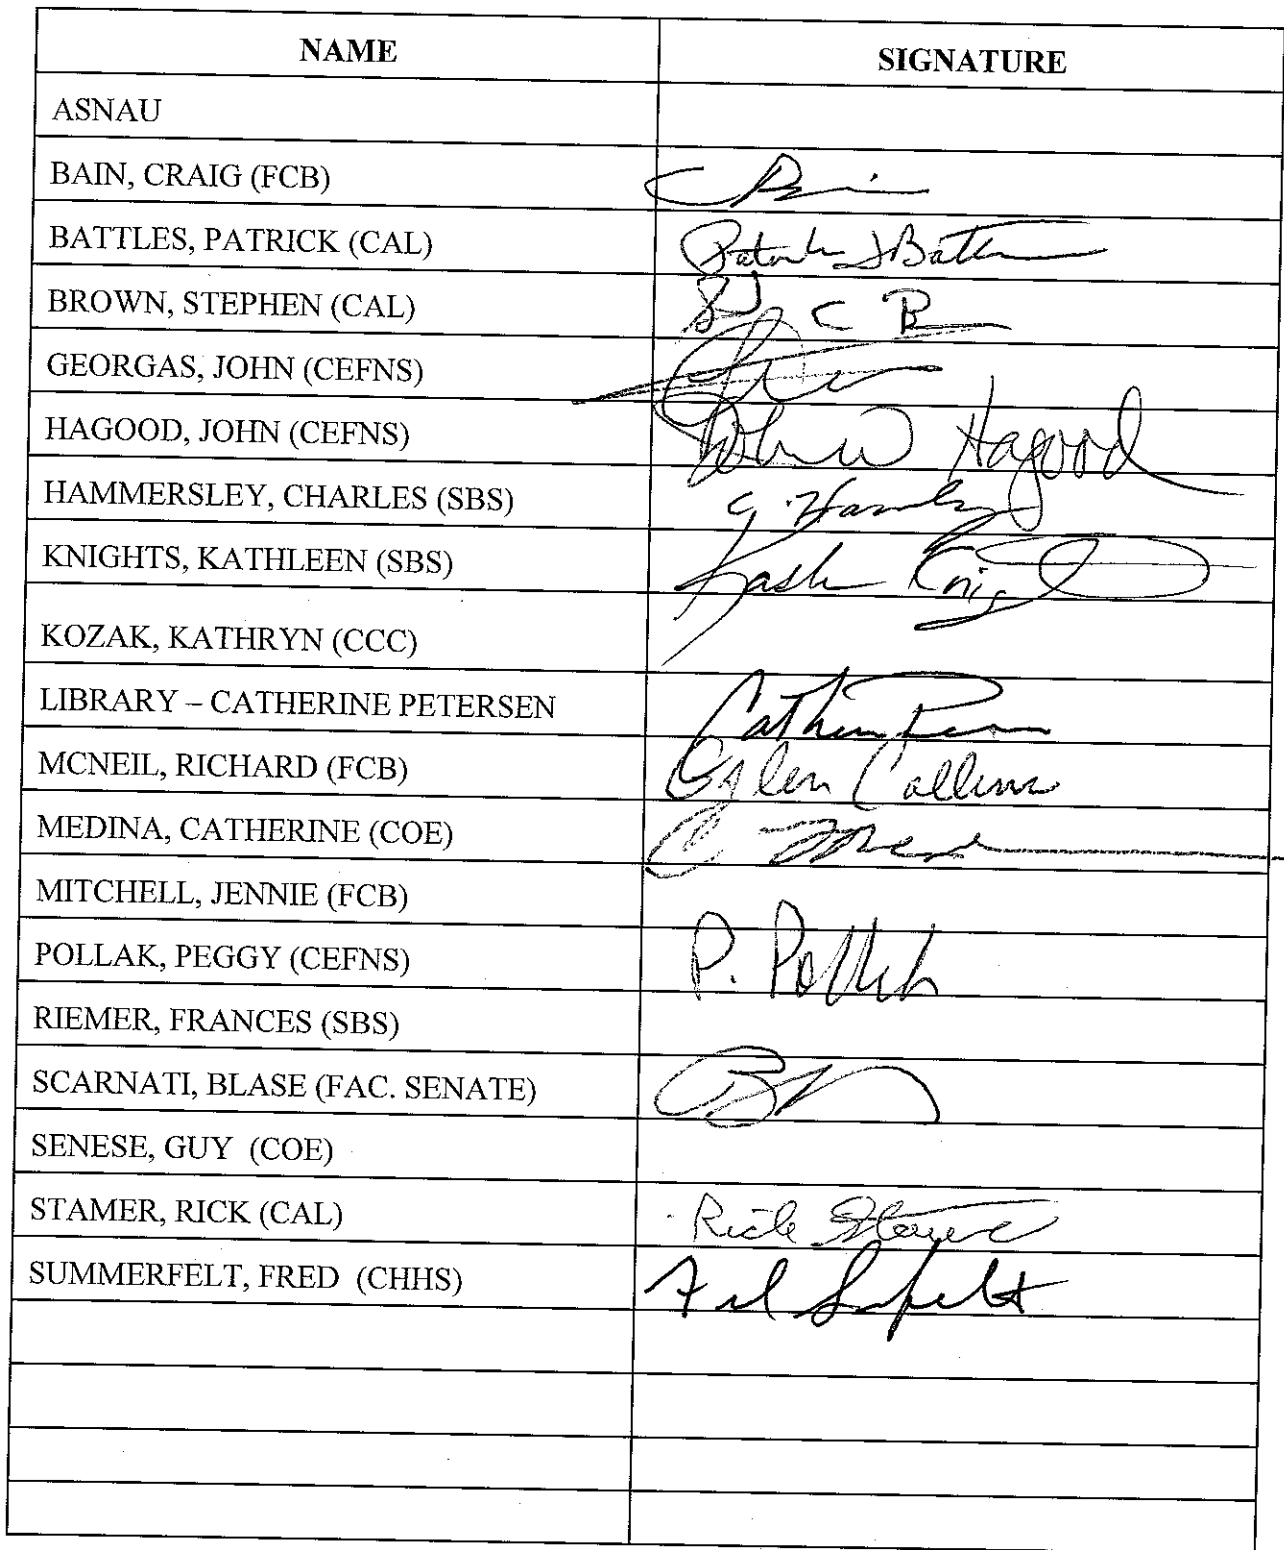 NAME SIGNATURE
ASNAU
BAIN, CRAIG (FCB)
BATTLES, PATRICK (CAL)
BROWN, STEPHEN (CAL)
GEORGAS, JOHN (CEFNS)
HAGOOD, JOHN (CEFNS) John W Hagood
HAMMERSLEY, CHARLES (SBS)
KNIGHTS, KATHLEEN (SBS)
KOZAK, KATHRYN (CCC)
LIBRARY – CATHERINE PETERSEN
MCNEIL, RICHARD (FCB) Glen Collins
MEDINA, CATHERINE (COE)
MITCHELL, JENNIE (FCB)
POLLAK, PEGGY (CEFNS) P. Pollak
RIEMER, FRANCES (SBS)
SCARNATI, BLASE (FAC. SENATE)
SENESE, GUY (COE)
STAMER, RICK (CAL) Rick Stamer
SUMMERFELT, FRED (CHHS)